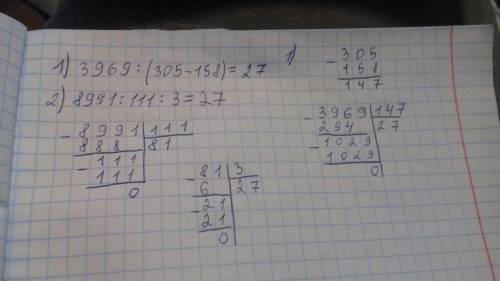 1) 3969:(305-158)=27
2) 8991:111:3=27
- 8991 | 111
888 | 81
- 111
111
0
- 81 | 3
6 | 27
- 21
21
0
1) - 305
158
147
- 3969 | 147
294 | 27
- 1029
1029
0